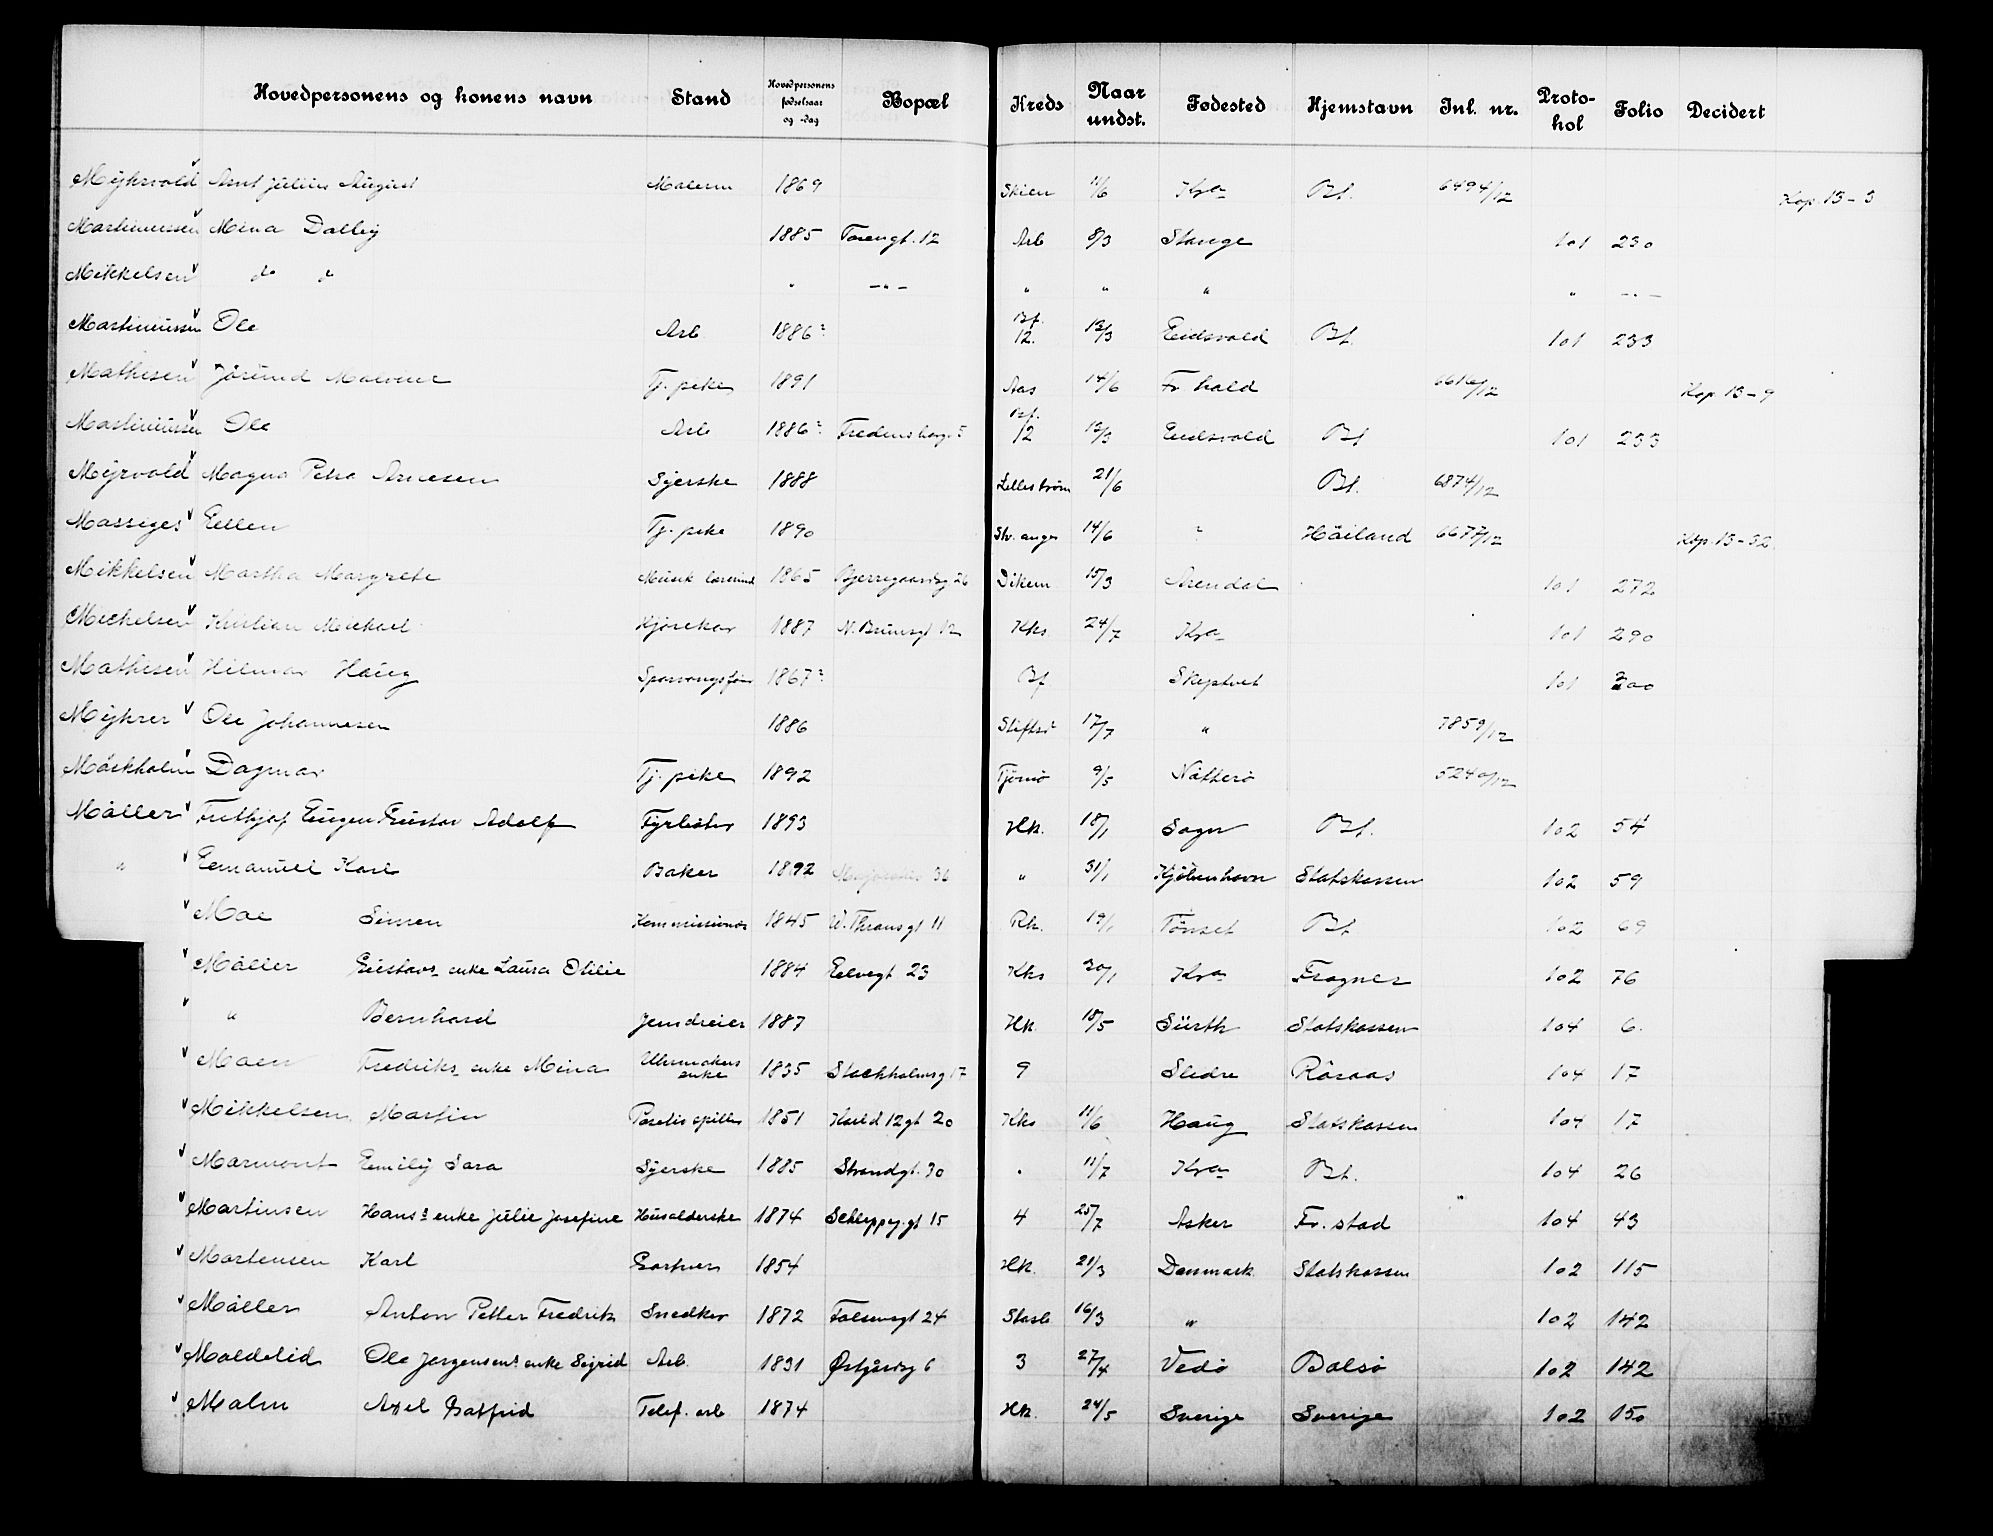 Hovedpersonens og konens navn Stand Hovedpersonens fødselsaar og -dag Bopæl Kreds Naar undst. Fødested Hjemstavn Inl. nr. Protokol Folio Decidert
Myhrvold Arnt Julius August Malerm 1869 Skien 11/6 Kra Bf. 6494/12 Kop. 13-3
Martinussen Mina Dalby 1885 Torengt. 12 Arb 8/3 Stange 101 230
Mikkelsen do do " -"- " " " " -"-
Martinussen Ole Arb 1886? Bf. 12. 13/3 Eidsvold Bf. 101 233
Mathisen Jørund Malvine Tj. pike 1891 Aas 14/6 Fr hald 6616/12 Kop. 13-9
Martinussen Ole Arb 1886? Fredensborg 5 Bf. 12 13/3 Eidsvold Bf 101 233
Myrvold Magna Petra Arnesen Syerske 1888 Lillestrøm 21/6 Bf. 6874/12
Massiges Ellen Tj. pike 1890 Stv. anger 14/6 ? Høiland 6677/12 Kop. 13-32
Mikkelsen Martha Margrete Musik lærerind 1865 Bjerregaardsg 26 Dikem 15/3 Arendal 101 272
Michelsen Kristian Michael Kjørekar 1887 N. Brunsgt 12 Kks 24/7 Kra 101 290
Mathisen Hilmar Haug Sporvongsfør 1867? Bf Skiptvet 101 300
Myhrer Ole Johannesen 1886 Stiftsd 17/7 " 7859/12
Mørkholm Dagmar Tj. pike 1892 Tjømø 9/5 Nøtterø 5240/12
Møller Frithjof Eugen Gustav Adolf Fyrbøter 1893 Hk. 18/1 Sogn Bf. 102 54
" Emanuel Karl Baker 1892 36 " 31/1 Kjøbenhavn Statskassen 102 59
Moe Simen Kommissionær 1845 W. Thranesgt 11 Rk. 19/1 Tønset Bf 102 69
Møller Gustavs enke Laura Otilie 1884 Elvegt 23 Kks 30/1 Kra Frogner 102 76
" Bernhard Jerndreier 1887 Hk. 18/5 Sürth Statskassen 104 6.
Moen Fredriks enke Mina Uhrmakers enke 1835 Stockholmsg 17 9 Slidre Røraas 104 17
Mikkelsen Martin Positiv spiller 1851 Karl d 12gt 20 Kks 11/6 Haug Statskassen 104 17
Marmont Emily Sara Syerske 1885 Strandgt. 30 " 11/7 Kra Bf. 104 26
Martinsen Hans's enke Julie Josefine Husholderske 1874 Schleppeg.gt 15 4 25/7 Asker Fr. stad 104 43
Mortensen Karl Gartner 1854 Hk. 21/3 Danmark Statskassen 102 115
Møller Anton Petter Fredrik Snedker 1872 Falsensgt 24 Stasb 16/3 " 102 142
Moldelid Ole Jørgensens enke Sigrid Arb. 1831 Østgaardsg 6 3 27/4 Vedø Bolsø 102 142
Malm Axel Gotfrid Telef. arb 1874 Hk. 24/5 Sverige Sverige 102 150